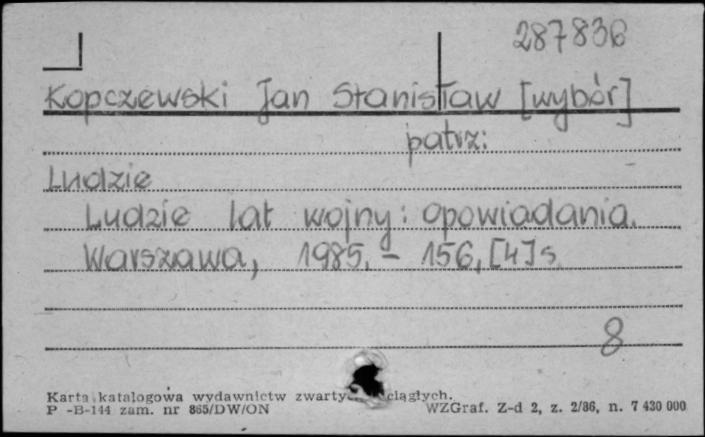 287836
Kopczewski Jan Stanisław [wybór]
patrz:
Ludzie
Ludzie lat wojny: opowiadania.
Warszawa, 1985. - 156, [4] s.
8
Karta katalogowa wydawnictw ciągłych.
P -B-144 zam. nr 865/DW/ON
WZGraf. Z-d 2, z. 2/86, n. 7 430 000